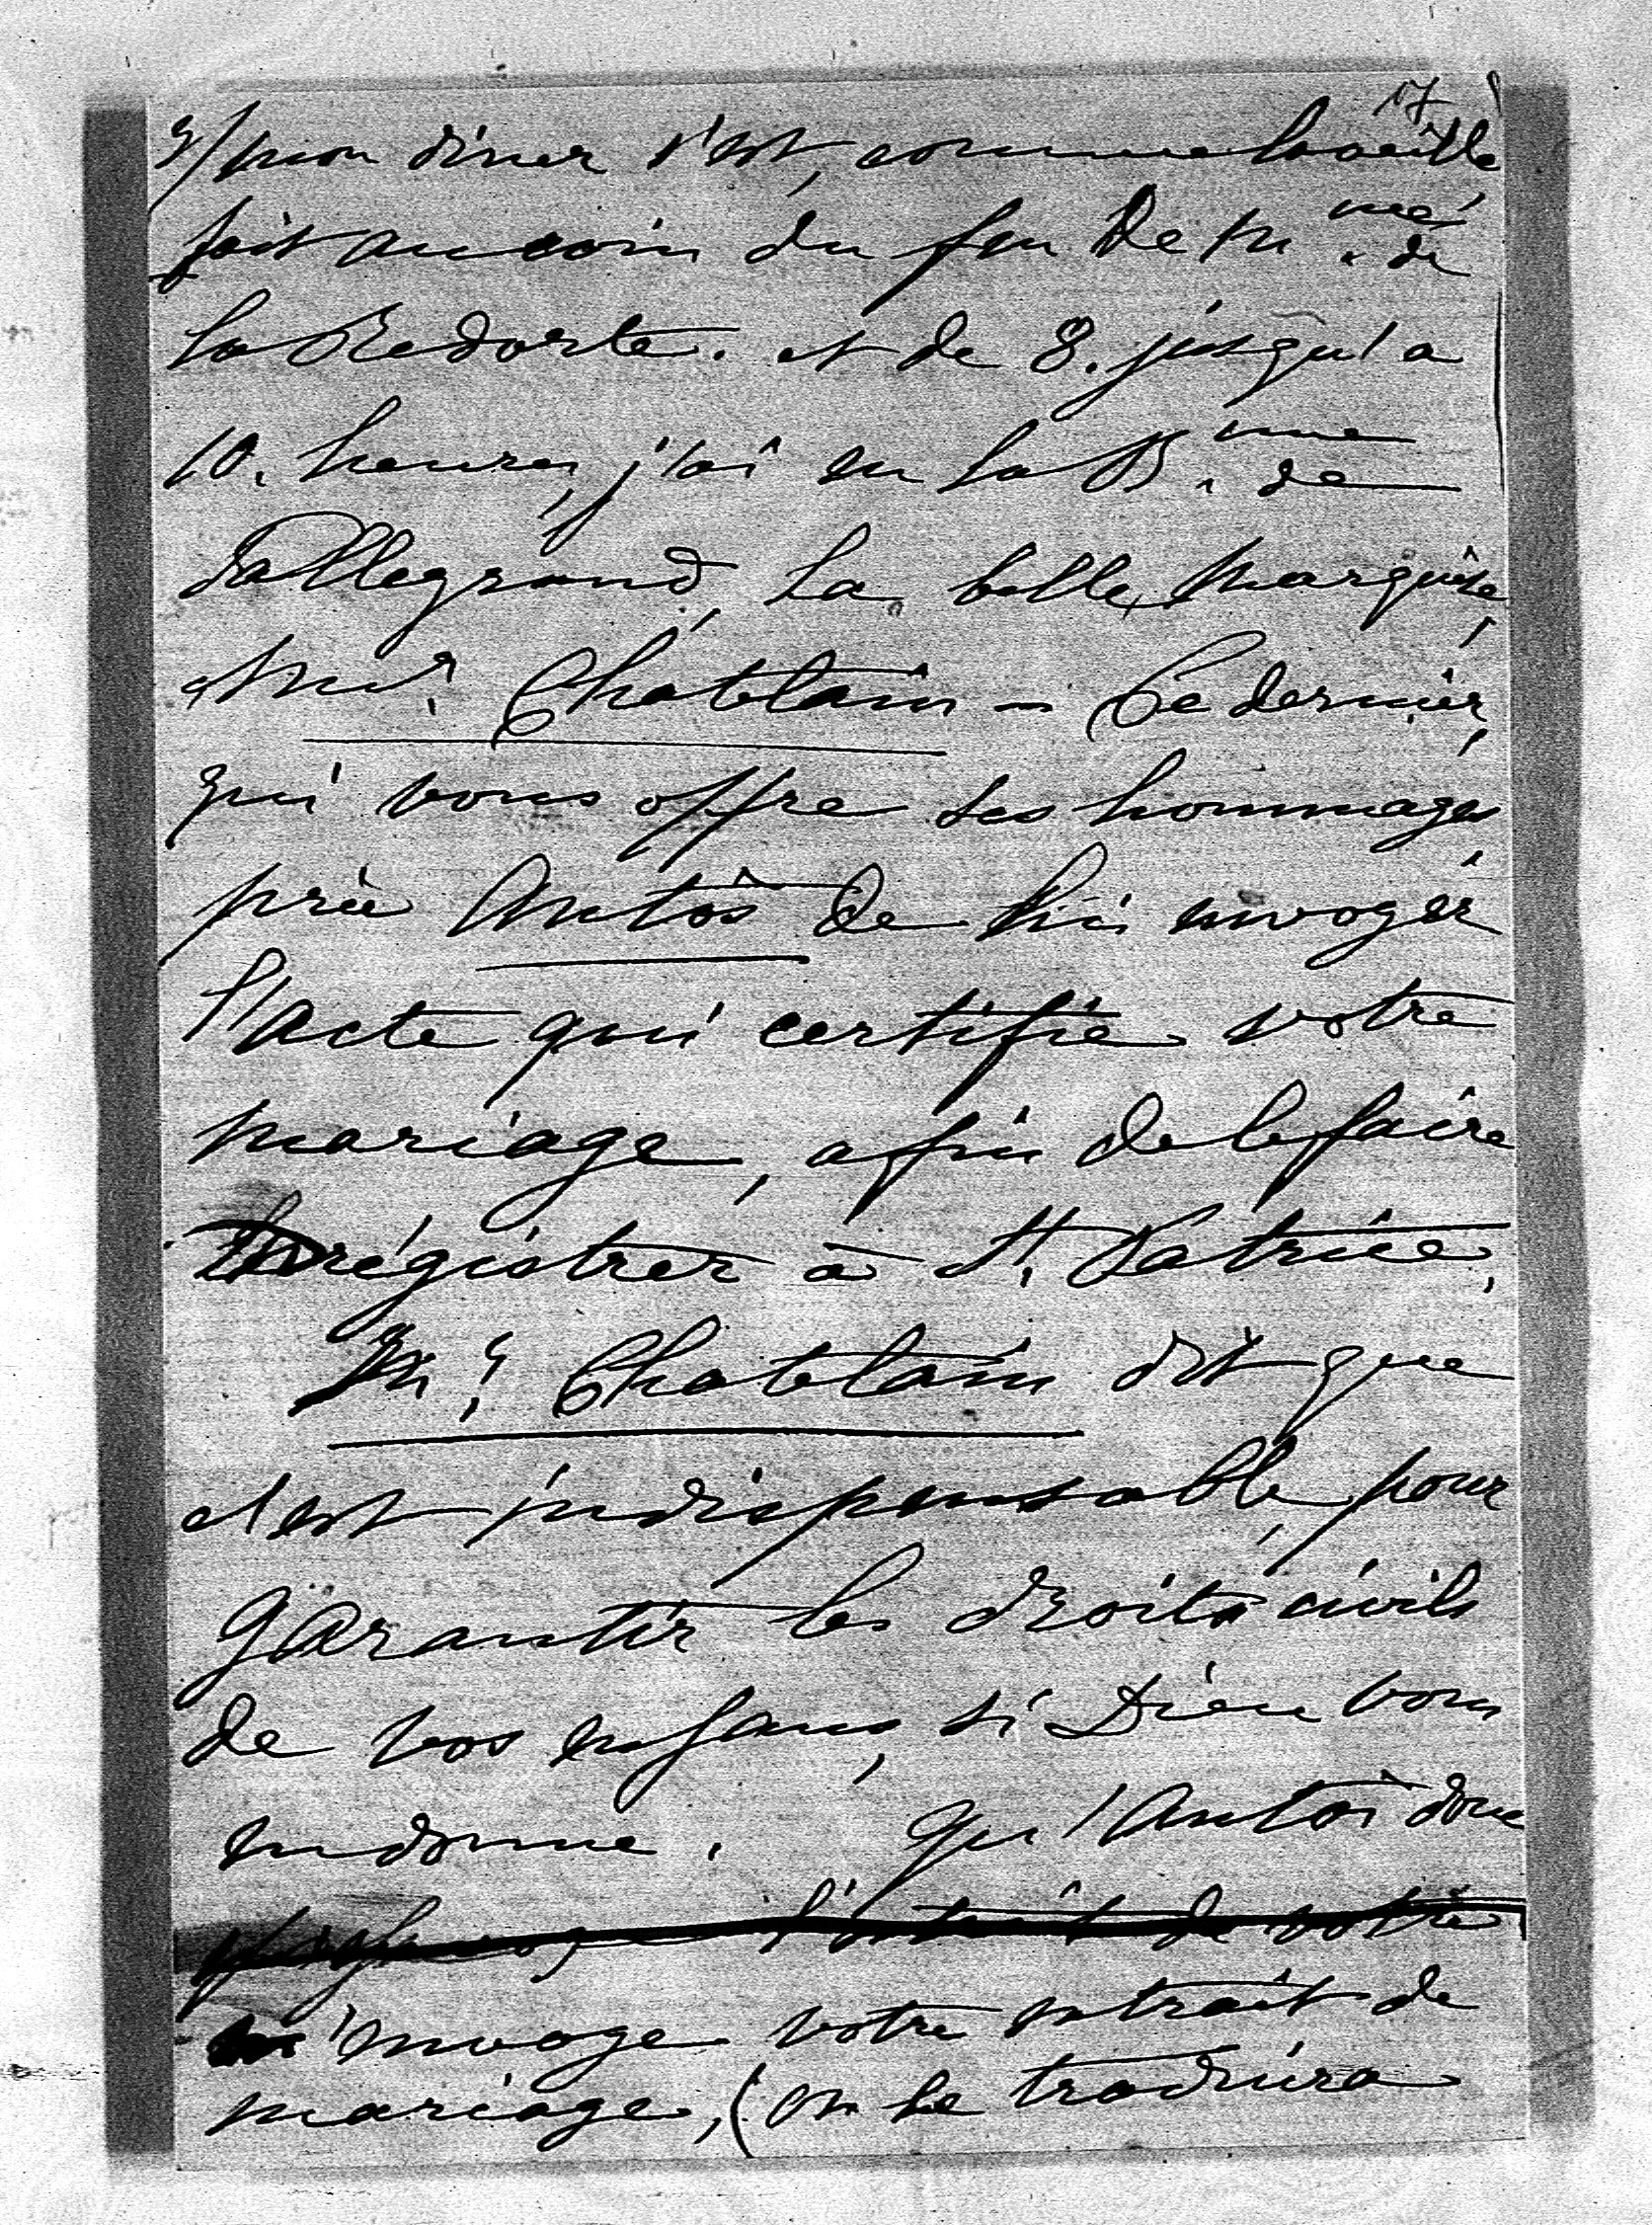 17
3/ mon diner s'est, comme la veille
fait au coin du feu de M.me de
la Redorte. et de 8. jusqu'a
10. heures, j'ai eu la B.nne de
Dallegrand, la belle Marquise,
et Mr. Chatelain – Ce dernier,
qui vous offre ses hommages
prie Antós de lui envoyer
l'Acte qui certifie votre
mariage, afin de le faire
enrégistrer à St. Patrice.
Mr. Chatelain dit que
c'est indispensable, pour
garantir les droits civils
de vos enfans, si Dieu vous
en donne. Qu'Antós donc
l'extrait de votre
m'envoye votre extrait de
mariage, (on le traduira